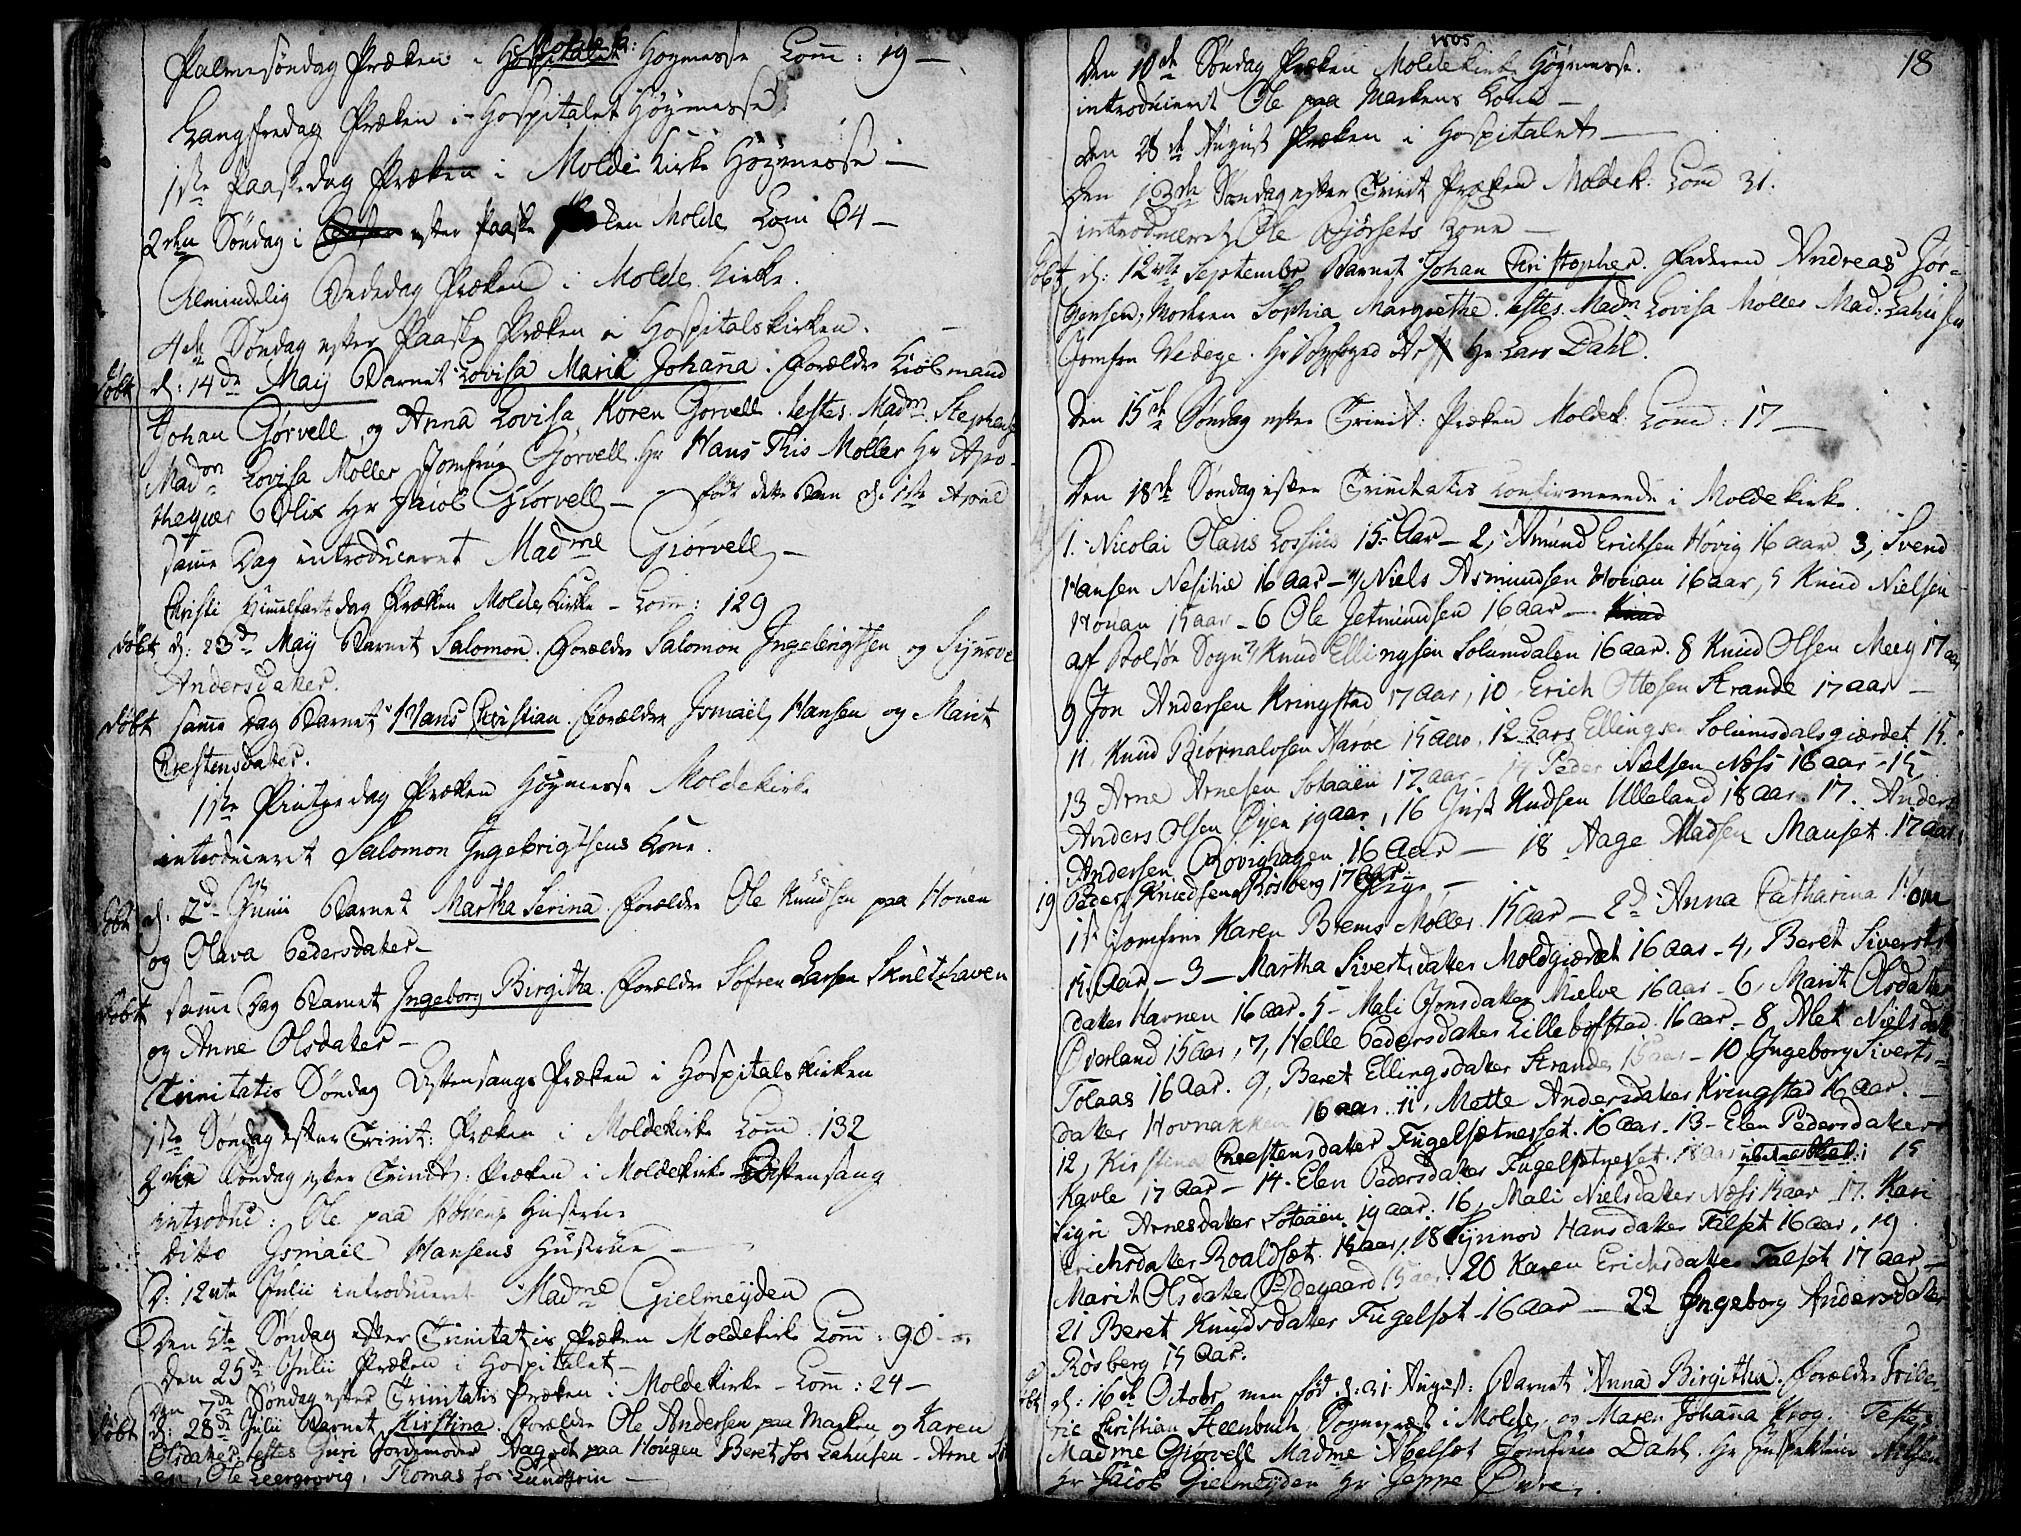 Palmesøndag Præken i Hospitalet Høymesse Com: 19 —
Molde k:
Langfredag Præken i Hospitalet Høymesse
1ste Paaskedag Præken i Molde Kirke Høymesse —
2den Søndag i efter Paaske Molde Com 64 —
Almindelig Bededag Præken i Molde Kirke.
4de Søndag efter Paaske Præken i Hospitalskirken. —
døbt d: 14de Maij Barnet Lovisa Maria Johanna. Forældre Kiøbmand
Johan Gørvell, og Anna Lovisa Koren Gørvell. testes. Madm Stephens
Madm Lovisa Møller Jomfrue Gørvell Hr Hans This Møller Hr Apo-
thequer Blix Hr Jacob Giørvell — født dette Barn d: 1ste April
samme Dag introduceret Madme Giørvell —
Christi Himmelfarts dag Præken Molde Kirke — Com: 129
døbt d: 23de Maij Barnet Salomon. Forældre Salomon Ingebrigtsen og Synnove
Andersdater.
døbt samme Dag Barnet Hans Christian. Forældre Ismael Hansen og Marit
Chrestensdater.
1ste Pintzedag Præken Høymesse Moldekirke
introduceret Salomon Ingebrigtsens Kone.
døbt d: 2de Junii Barnet Martha Serina. Forældre Ole Knudsen paa Honen
og Olava Pedersdater —
døbt samme Dag Barnet Ingeborg Birgitha. Forældre Søfren Larsen
og Anne Olsdater —
Trinitatis Søndag Aftensangs Præken i Hospitalskirken
1ste Søndag efter Trinit: Præken i Moldekirke Com: 132
2den Søndag efter Trinit: Præken i Moldekirke Aftensang
introduc: Ole paa Høvens Hustrue
ditto Ismael Hansens Hustrue —
D: 12te Julii introduceret Madme Gielmeyden
Den 5te Søndag efter Trinitatis Præken Moldekirke Com: 90 —
Den 25de Julii Præken i Hospitalet —
Den 7de Søndag efter Trinitatis Præken i Moldekirke — Com: 24 —
døbt d: 28de Julii Barnet Kirstina. Forældre Ole Andersen paa Marken og Karen
Olsdater testes Guri Gordemoder Aagodt paa Hougen Beret hos Lahusen — Arne
Ole Leergrovig, Thomas hos Lundgrin —
1805
18
Den 10de Søndag Præken Moldekirke Høymesse.
introduceret Ole paa Markens Kone —
Den 28de August Præken i Hospitalet —
Den 13de Søndag efter Trinit Præken Moldek: Com 31.
introduceret Ole Bjørsets Kone —
døbt d: 12te September Barnet Johan Christopher. Faderen Andreas Jør-
gensen, Moderen Sophia Margrethe. testes. Madm Lovisa Møller Mad: Lahusen
Jomfru Wedege. Hr Hr: Lars Dahl.
Den 15de Søndag efter Trinit: Præken Moldek: Com: 17 —
Den 18de Søndag efter Trinitatis confirmerede i Moldekirke.
1. Nicolai Olaus Lossius 15 Aar — 2, Amund Erichsen Hovig 16 aar 3, Svend
Hansen 16 aar — 4, Niels Asmundsen Honan 16 aar, 5 Knud Nielsen
Honan 15 aar — 6 Ole Jetmundsen 16 aar — Knud
af Bolsøe Sogn 7, Knud Ellingsen Solumdalen 16 aar. 8 Knud Olsen Meeg 17 aar
9 Jon Andersen Kringstad 17 aar, 10, Erich Ottosen Strande 17 aar —
11, Knud Biørnalvsen Harøe 15 aar, 12 Lars Ellingsen Solumsdalsgiærdet 15.
13 Arne Arnesen Sotaaen 17 aar — 14 Peder Nielsen Næss 16 aar — 15
Anders Olsen Øyen 19 aar, 16 Just Knudsen Ulleland 18 aar. 17. Anders
Andersen Røvighagen 16 Aar — 18 Aage Madsen Mauset 17 aar
19 Peder Knudsen Røsberg 17 aar
Piger —
1ste Jomfrue Karen Brems Møller 15 aar — 2de Anna Catharina
15 Aar — 3 — Martha Sivertsdater Moldgiærdet 16 aar — 4, Beret Siverts
dater Havnen 16 aar. 5 — Mali Jonsdater Mielve 16 aar — 6, Marit Olsdater
Øverland 15 aar, 7, Helle Pedersdater Lillebostad 16 aar — 8 Alet Nielsdater
Tolaas 16 Aar. 9, Beret Ellingsdater Strande 15 aar — 10 Ingeborg Siverts-
dater Hovnakken 16 aar. 11, Mette Andersdater Kringstad 16 Aar. —
12, Kirstina Chrestensdater Fugelsætnesset. 16 aar. 13 — Elen Pedersdater
Kavle 17 Aar — 14. Elen Pedersdater Fugelsetnesset. 18 aar 15
Sigri Arnesdater Sotaaen 19 aar. 16, Mali Nielsdater Næss 15 aar 17. Kari
Erichsdater Roaldsæt. 15 aar, 18 Synnov Hansdater Filset 16 aar, 19
Marit Olsdater Ødegaard 15 aar. 20 Karen Erichsdater Talset 17 aar —
21 Beret Knudsdatter Fugelsæt 16 aar — 22 Ingeborg Andersdater
Røsberg 15 Aar.
døbt d: 16de Octobr men fød d: 31 August: Barnet Anna Birgitha. Forældre Fride-
ric Christian Steenbuch, Sognepræst i Molde, og Maren Johanna Krog. Testes
Madme Giørvell Madme Abelset Jomfrue Dahl. Hr Inspekteur Nilsen
Hr Jacob Gielmeyden Hr Jeppe Øvre.